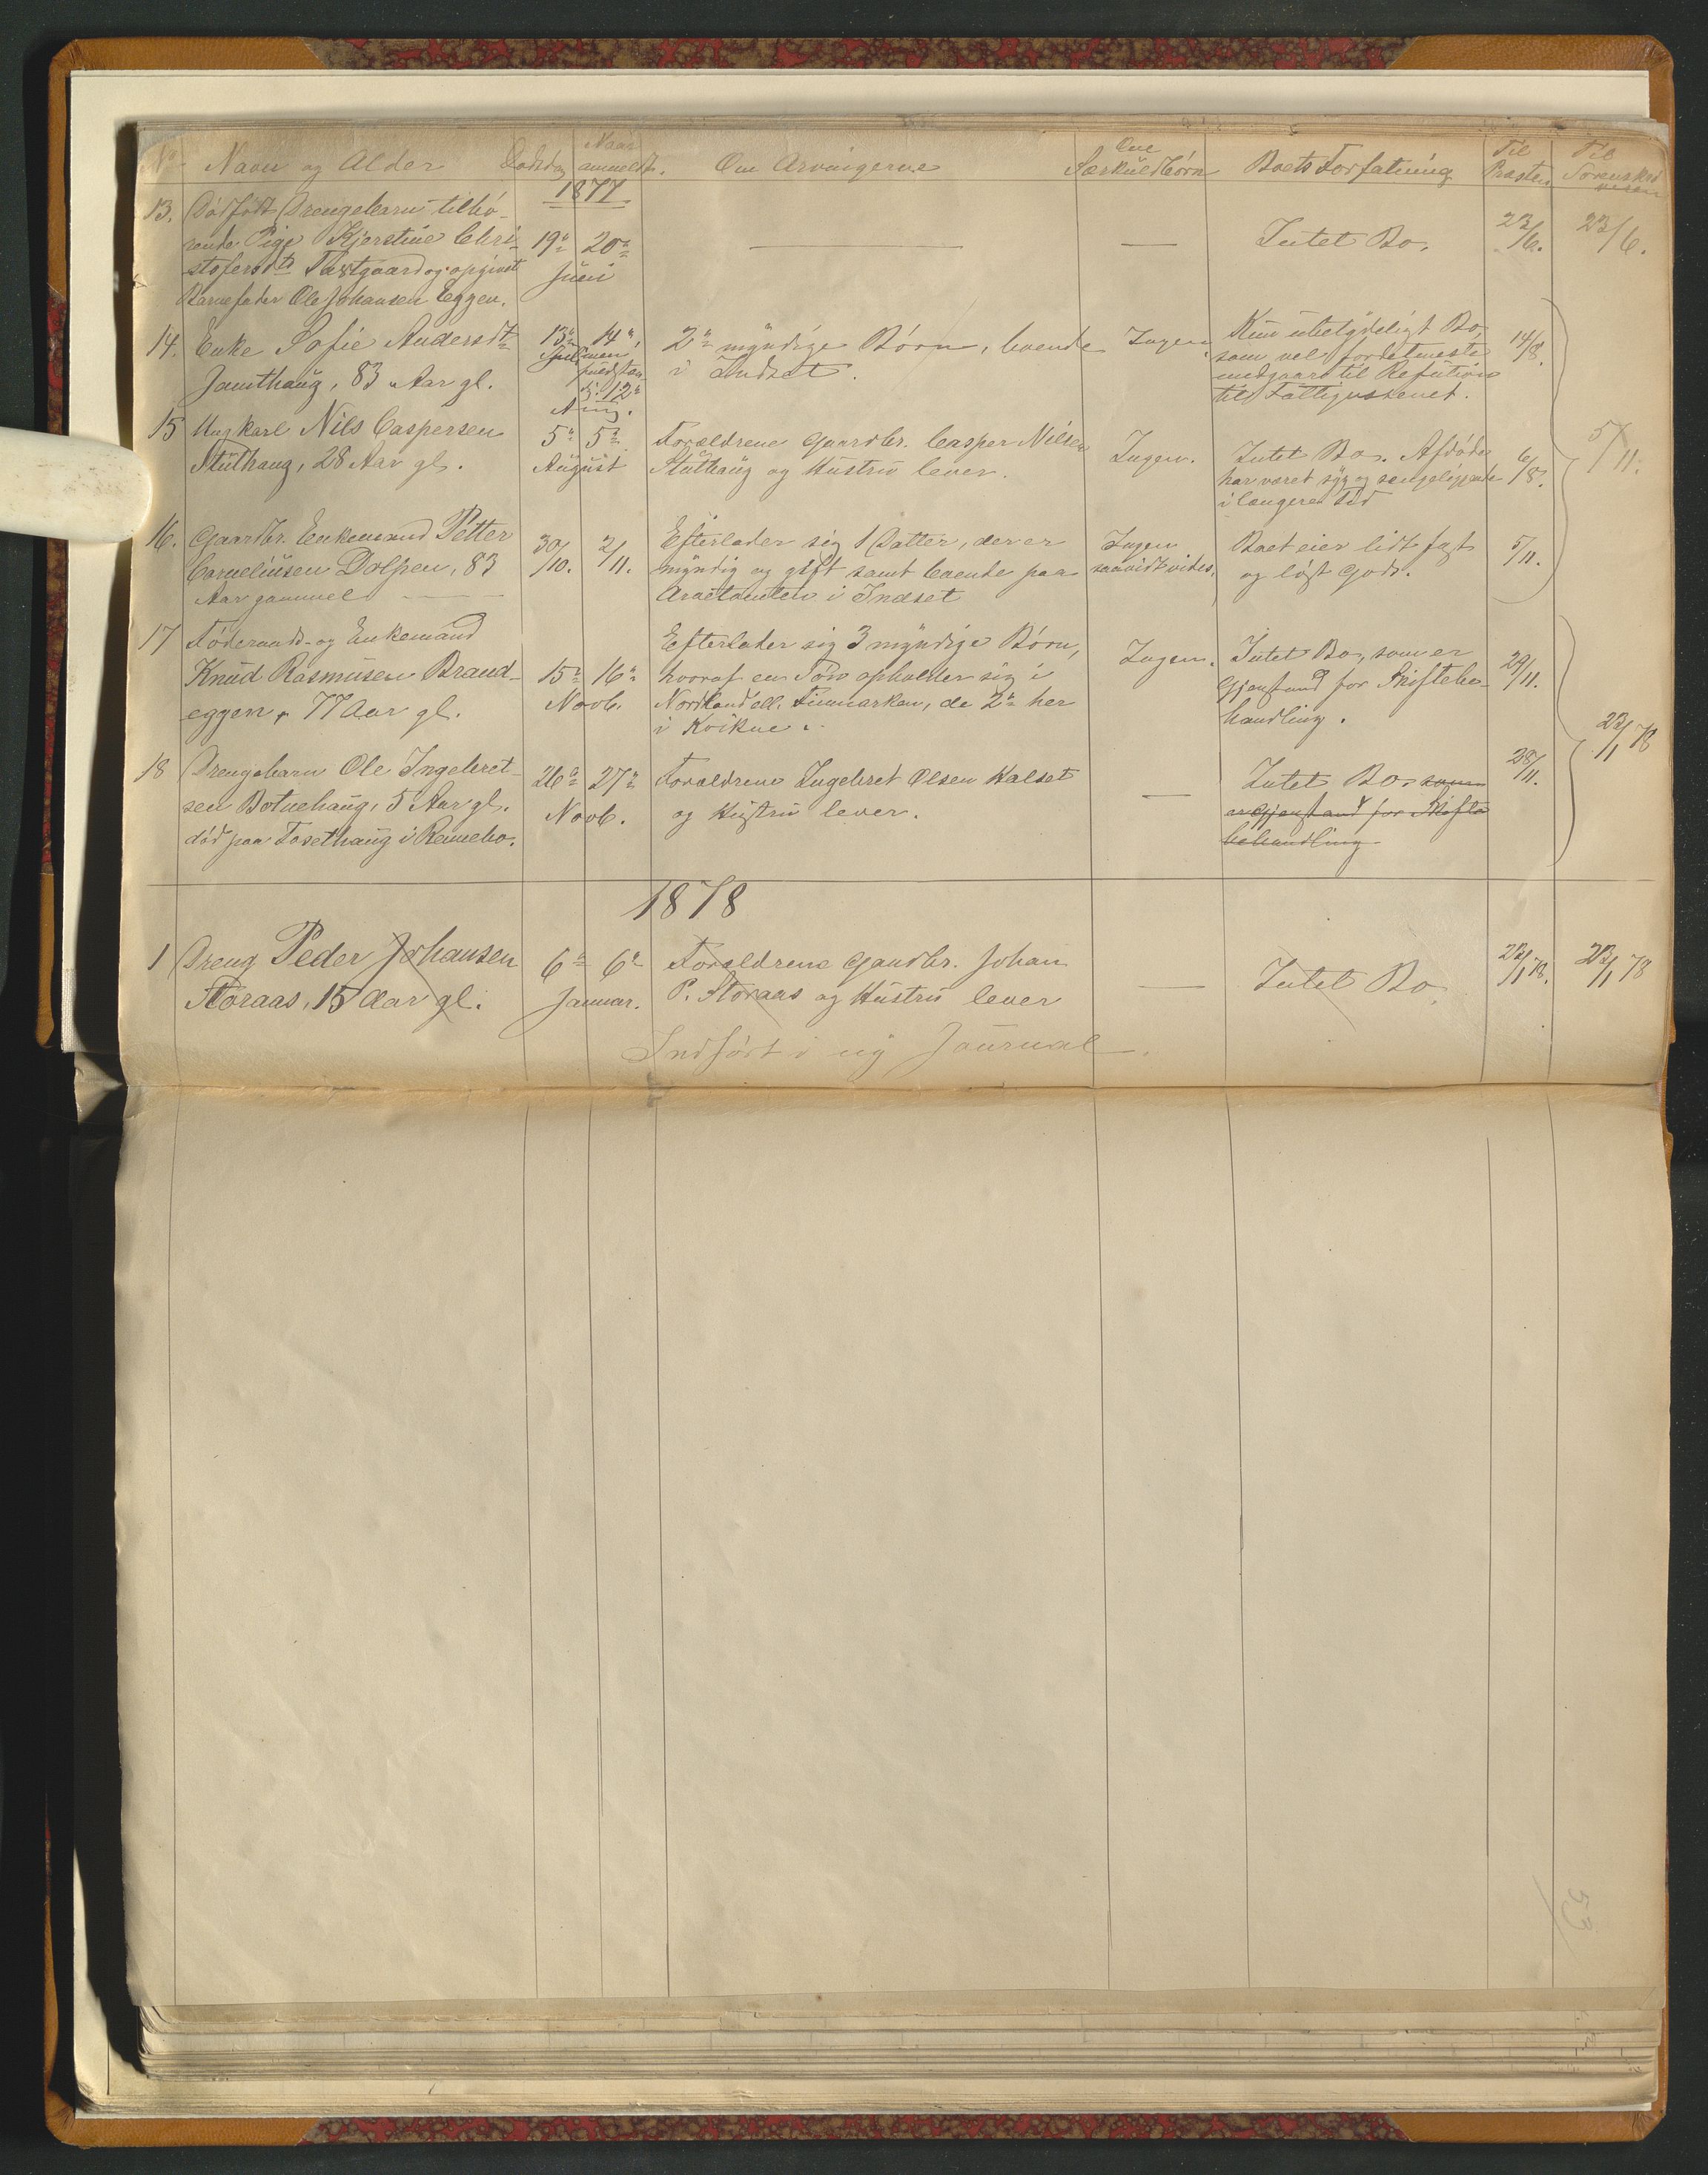 No Navn og Alder Dødsdag Naar anmeldt. Om Arvingerne Om Særkuldbørn Boets Forfatning Til Præsten Til Sorenskriveren
1877
13. Dødfødt Drengebarn tilhø-
rende Pige Kjerstine Chri- 19de 20de — — Intet Bo. 23/6. 23/6.
stofersdtr og opgivet Juni
Barnefader Ole Johansen Eggen.
14. Enke Sofie Andersdtr 13de 14de, 2de myndige Børn, boende Ingen Kun ubetydeligt Bo, 14/8.
Jamthaug, 83 Aar gl. Juli men i Indset. som vel fordetmeste
medgaar til Refution
12te til Fattigvæsenet.
Aug.
15 Ungkarl Nils Caspersen 5te 5te Forældrene Gaardbr. Casper Nilsen Ingen. Intet Bo. Afdøde 6/8. 5/11.
Stuthaug, 28 Aar gl. August Stuthaug og Hustru lever. har været syg og sengeliggende
i længere Tid
16. Gaardbr. Enkemand Petter 30/10. 2/11. Efterlader sig 1 Datter, der er Ingen Boet eier lidt fast 5/11.
Corneliusen Dolpen, 83 myndig og gift samt boende paa saavidt vides. og løst Gods.
Aar gammel — i Indset
17 Føderaads- og Enkemand Efterlader sig 3 myndige Børn,
Knud Rasmusen Brand- 15de 16de hvoraf en Søn opholder sig i Ingen. Intet Bo, som er 29/11.
eggen, 77 Aar gl. Novb. Nordland ell. Finmarken, de 2de her Gjenstand for Skiftebe-
i Kvikne. handling. 23/1 78
18 Drengebarn Ole Ingebret- 26de 27de Forældrene Ingebret Olsen Halset — Intet Bo. som 28/11.
sen Botnehaug, 5 Aar gl. Novb. og Hustru lever. er Gjenstand for Skifte
død paa Tosethaug i Rennebo. behandling
1878
1 Dreng Peder Johansen 6te 6te Forældrene Gaardbr. Johan — Intet Bo. 23/1 78. 23/1 78
Storaas, 15 Aar gl. Januar. P. Storaas og Hustru lever
Indført i ny Journal.
53